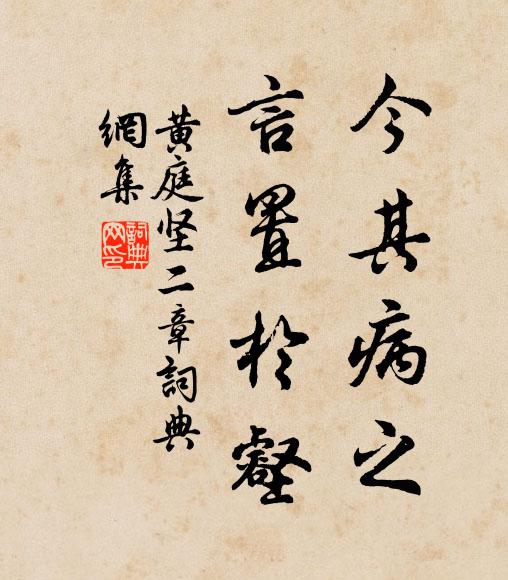 今其病之
言置於壑
黄庭坚二章詞典
網集
詞典
网印